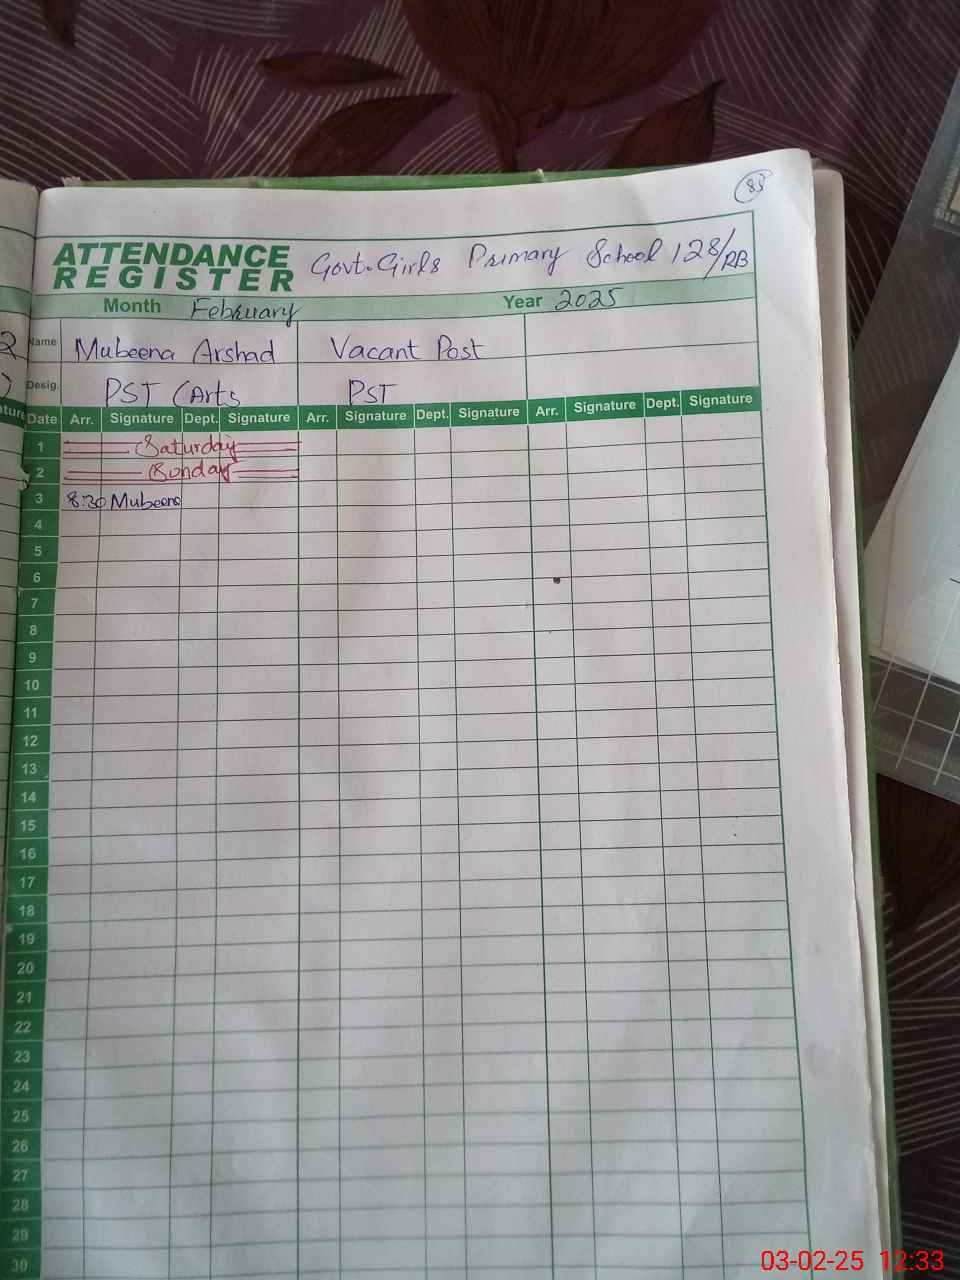 83
ATTENDANCE
REGISTER
Govt. Girls Primary School 128/RB
Month February Year 2025
Name Mubeena Arshad Vacant Post
Desig. PST (Arts PST
Date Arr. Signature Dept. Signature Arr. Signature Dept. Signature Arr. Signature Dept. Signature
1 Saturday
2 Sunday
3 8:30 Mubeena
4
5
6
7
8
9
10
11
12
13
14
15
16
17
18
19
20
21
22
23
24
25
26
27
28
29
30
03-02-25 12:33